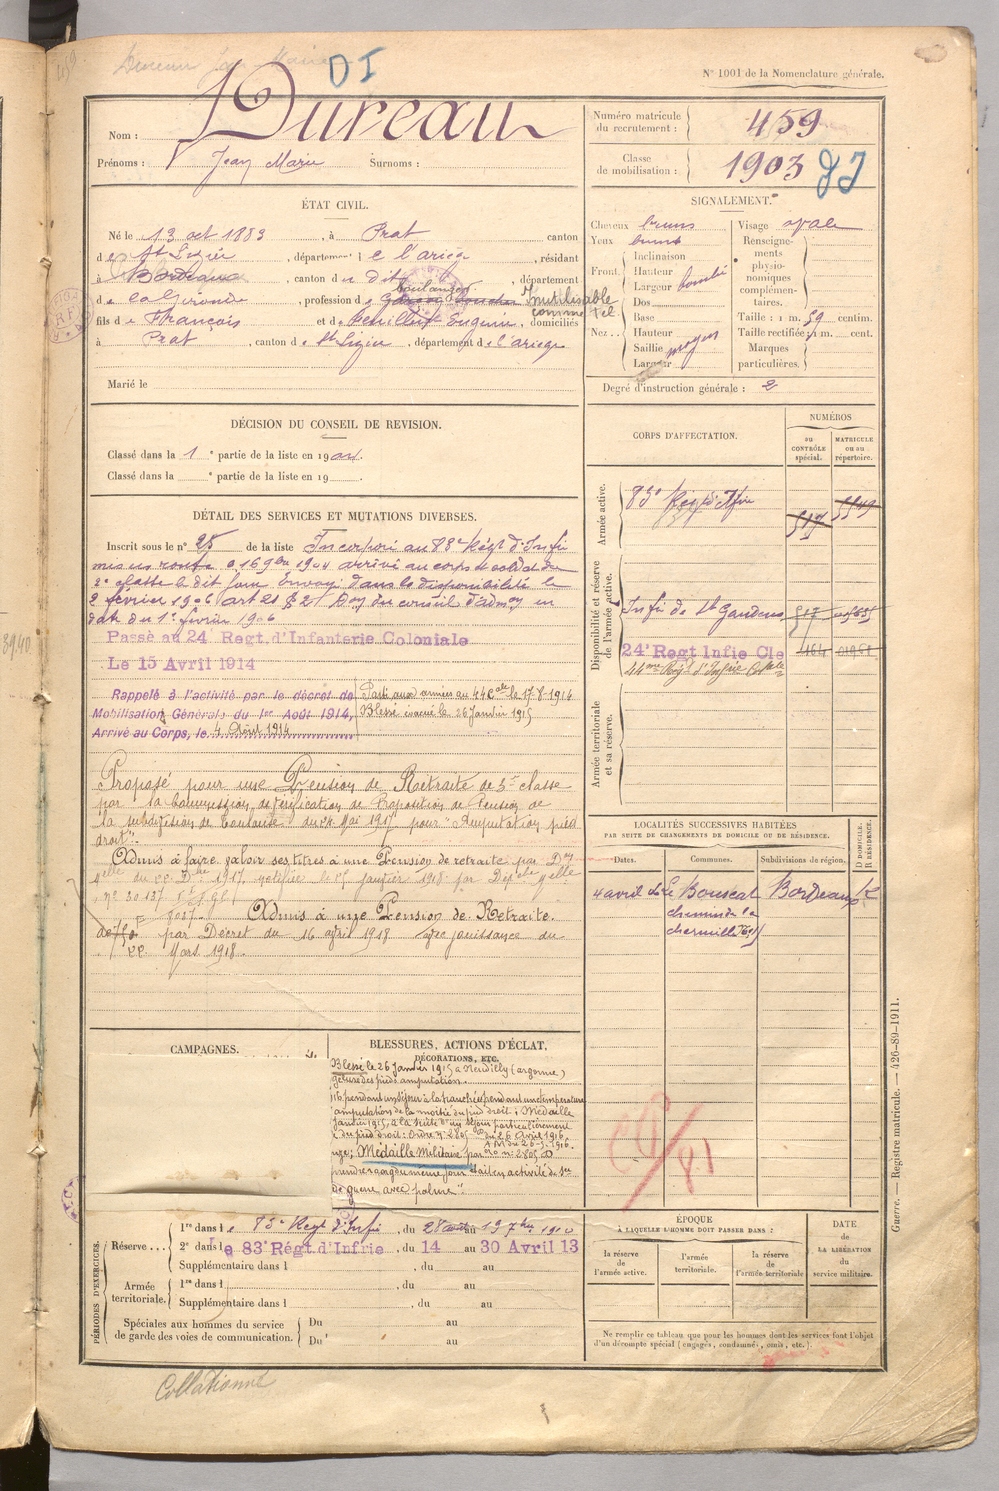 DI
N° 1001 de la Nomenclature générale.
Nom : Dureau
Prénoms : Jean Marie Surnoms :
Numéro matricule du recrutement : 459
Classe de mobilisation : 1903
ÉTAT CIVIL.
Né le 13 oct 1883, à Prat canton
de St Lizier, département de l'ariège, résidant
à Bordeaux, canton du dit, département
de la Gironde, profession de boulanger Inutilisable comme tel
fils de François et de Eugénie, domiciliés
à Prat, canton de St Lizier, département de l'ariège
Marié le
SIGNALEMENT.
Cheveux bruns
Yeux bruns
Front. Inclinaison
Hauteur
Largeur bombé
Nez... Dos
Base
Hauteur
Saillie moyen
Largeur
Visage ovale
Renseignements physionomiques complémentaires.
Taille : 1 m. 59 centim.
Taille rectifiée : 1 m. cent.
Marques particulières.
Degré d'instruction générale : 2
DÉCISION DU CONSEIL DE REVISION.
Classé dans la 1e partie de la liste en 1904.
Classé dans la e partie de la liste en 19 .
DÉTAIL DES SERVICES ET MUTATIONS DIVERSES.
Inscrit sous le n° 25 de la liste Incorporé au 83e Régt d'Infie
mis en route le 16 9bre 1904 arrivé au corps et soldat de
2e classe le dit jour. Envoyé dans la disponibilité le
2 février 1906 art 21 § 2 du conseil d'admon en
date du 1er février 1906
Passé au 24e Regt. d'Infanterie Coloniale
Le 15 Avril 1914
Rappelé à l'activité par le décret de
Mobilisation Générale du 1er Août 1914,
Arrivé au Corps, le 4 Août 1914
Parti aux armées au 44e Cale le 17-8-1914
Blessé évacué le 26 Janvier 1915
Proposé pour une Pension de Retraite de 5e classe
par la Commission de vérification de Proposition de Pension de
la subdivision de Toulouse du 24 Mai 1917 pour "Amputation pied
droit".
Admis à faire valoir ses titres à une Pension de retraite par
1917 notifiée le janvier 1918 par
n° 30.137
8027 Admis à une Pension de Retraite
de 750 F par Décret du 16 avril 1918 avec jouissance du
Mars 1918.
CORPS D'AFFECTATION.
NUMÉROS
au contrôle spécial.
matricule ou au répertoire.
Armée active.
83e Régt d'Infie 517 5549
Disponibilité et réserve de l'armée active.
Infie de St Gaudens 517
24e Regt Infie Cle 1164
44me Régt d'Infie Coloniale
Armée territoriale et sa réserve.
LOCALITÉS SUCCESSIVES HABITÉES
PAR SUITE DE CHANGEMENTS DE DOMICILE OU DE RÉSIDENCE.
Dates. Communes. Subdivisions de région. D DOMICILE. R RÉSIDENCE.
4 avril Le Bouscat Bordeaux R
chemin de la
CAMPAGNES.
BLESSURES, ACTIONS D'ÉCLAT,
DÉCORATIONS, ETC.
Blessé le 26 Janvier 1915 à Neuvilly (argonne)
gelure des pieds amputation.
pendant un séjour à la tranchée pendant une température
amputation de la moitié du pied droit; Médaille
Janvier 1915, à la suite d'un séjour particulièrement
du pied droit: Ordre n° 2805 du 26 Avril 1916
Médaille Militaire par
de guerre avec palme".
PÉRIODES D'EXERCICES.
Réserve... 1re dans le 83e Régt d'Infie, du 28 au 19 7bre 1910
2e dans le 83e Régt. d'Infrie, du 14 au 30 Avril 13
Supplémentaire dans l , du au
Armée territoriale. 1re dans l , du au
Supplémentaire dans l , du au
Spéciales aux hommes du service de garde des voies de communication. Du au
Du au
ÉPOQUE
À LAQUELLE L'HOMME DOIT PASSER DANS :
la réserve de l'armée active.
l'armée territoriale.
la réserve de l'armée territoriale
DATE DE LA LIBÉRATION du service militaire.
Ne remplir ce tableau que pour les hommes dont les services font l'objet
d'un décompte spécial (engagés, condamnés, omis, etc.).
Guerre. — Registre matricule. — 426-89-1911.
Collationné